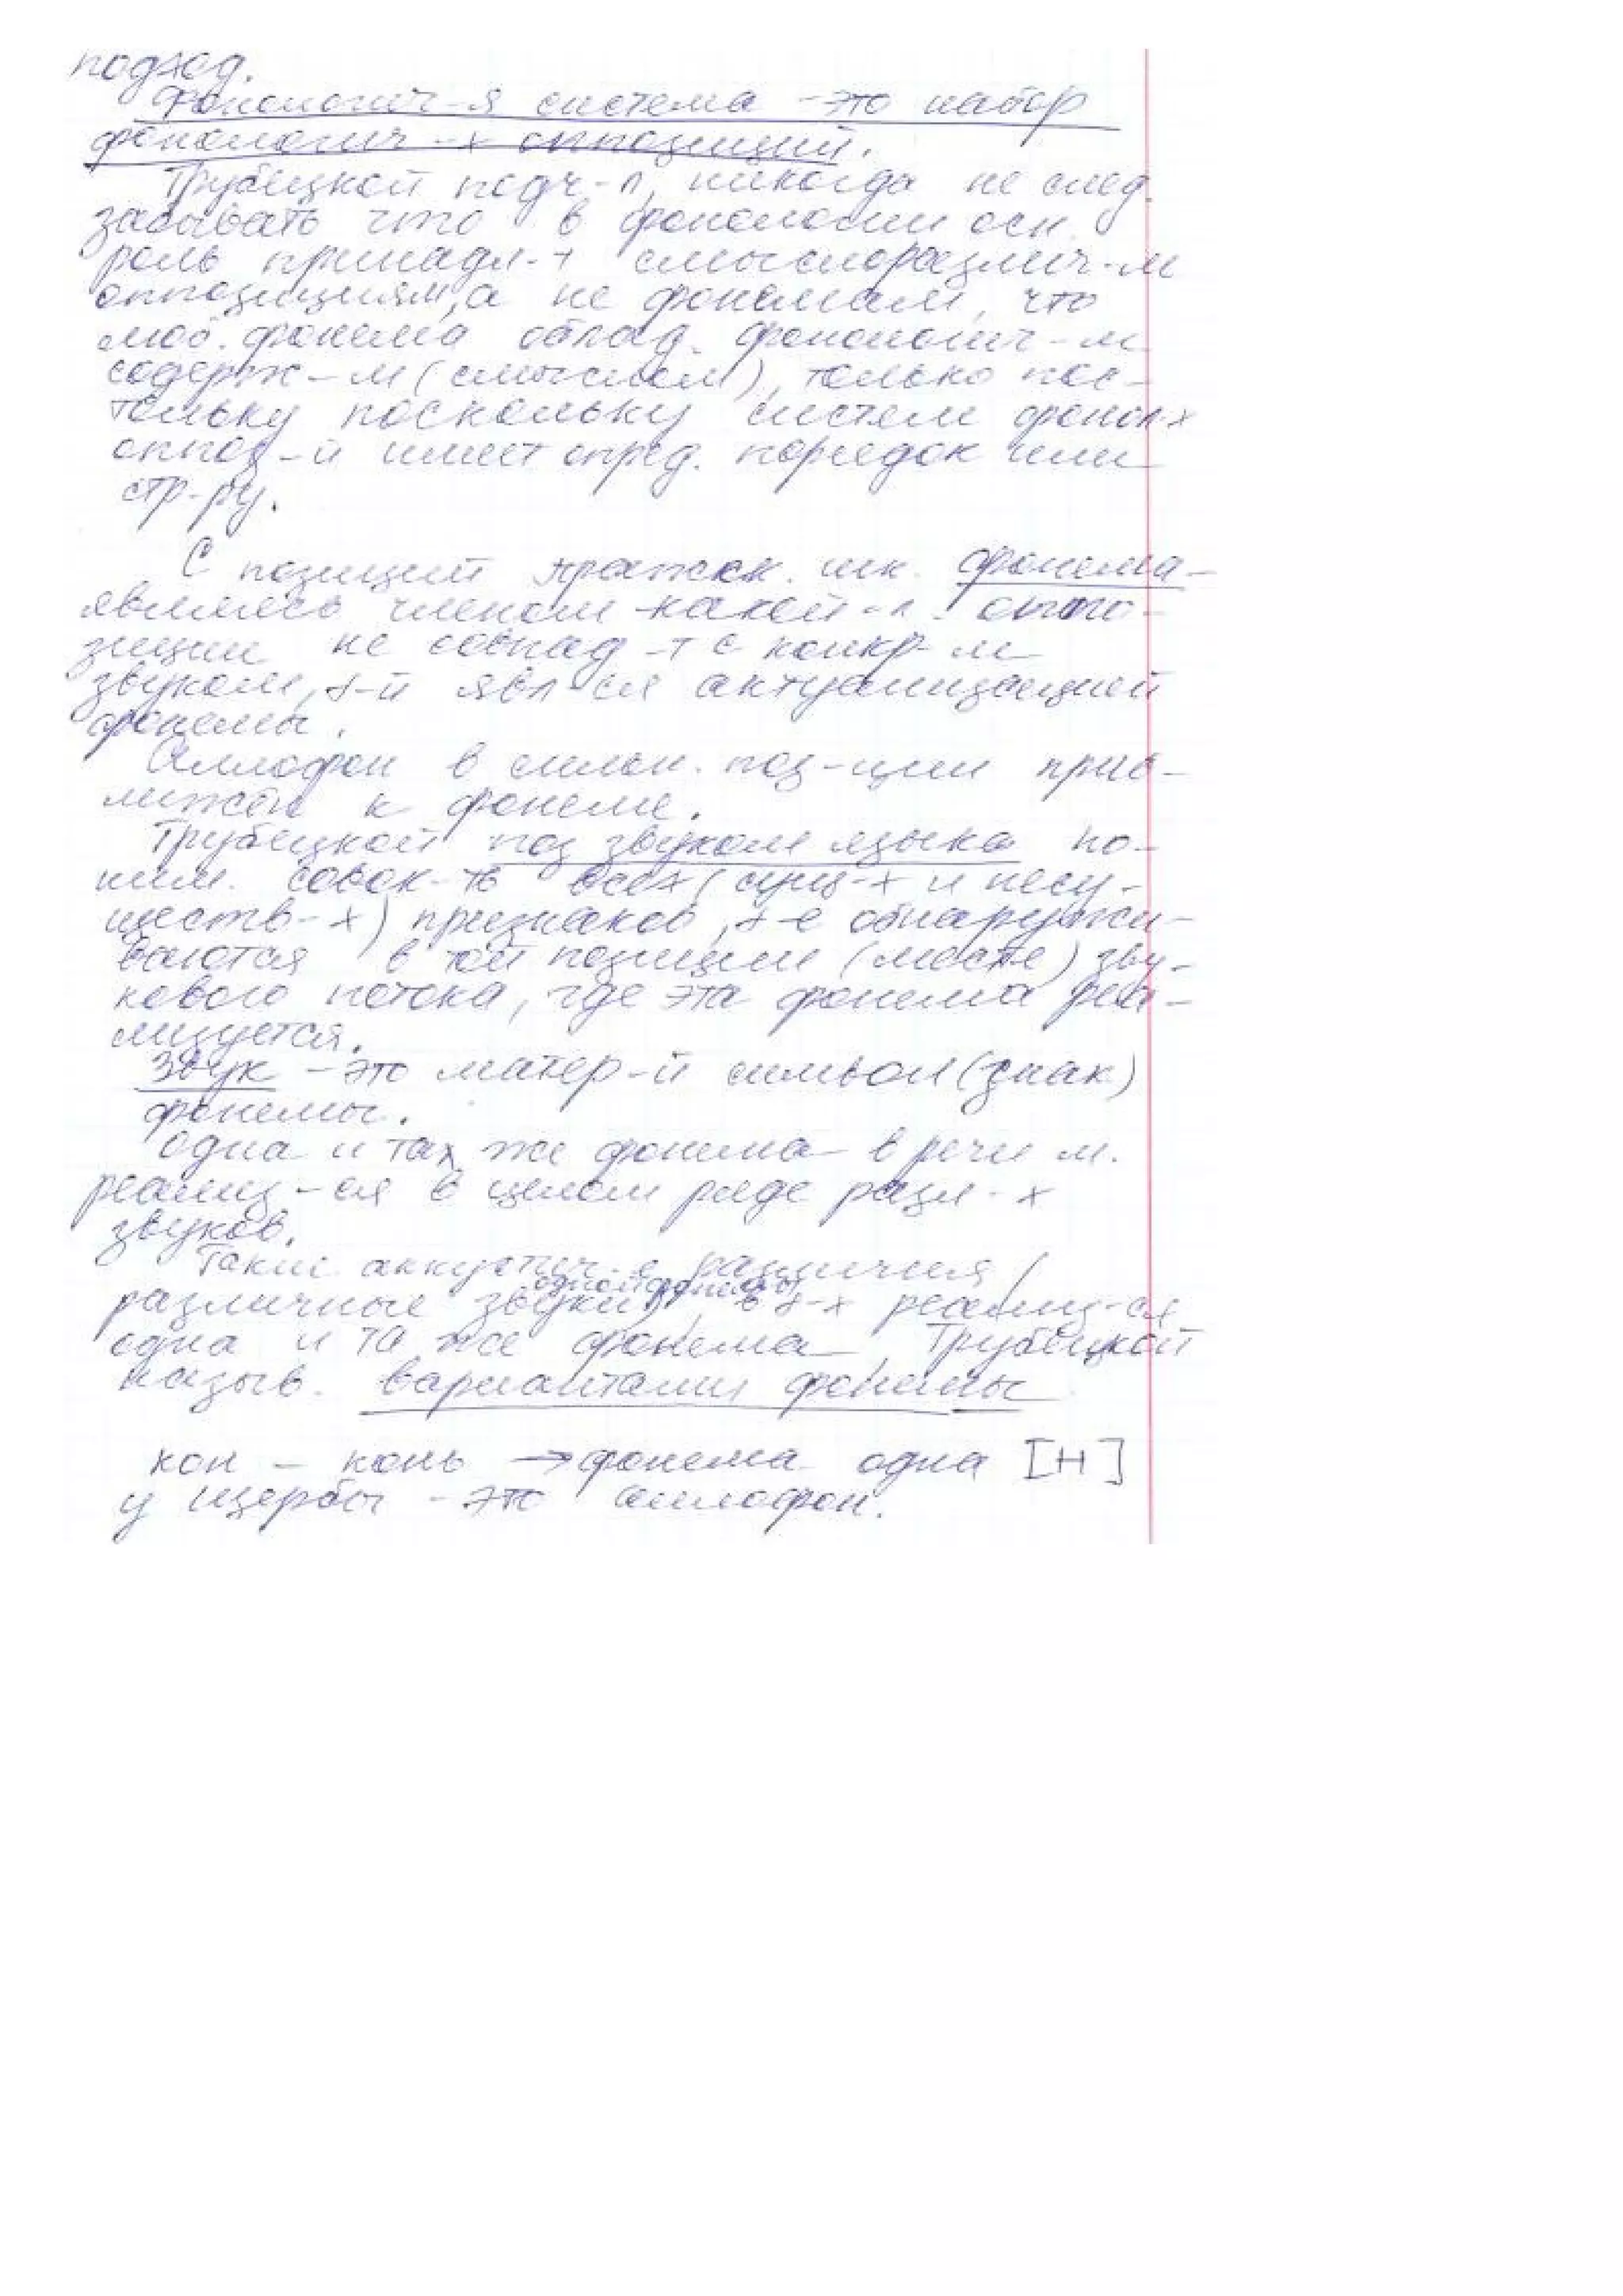 подход.
Фонологич-я система - это набор
фонологич-х оппозиций.
Трубецкой подч-л, никогда не след.
забывать что в фонологии осн.
роль принадл-т смыслоразлич-м
оппозициям, а не фонемам, что
люб. фонема облад. фонологич-м
содерж-м (смыслом), только пос-
тольку поскольку систем фонол-х
оппоз-й имеет опред. порядок или
стр-ру.
С позиций пражск. шк. фонема -
являясь членом какой-л. оппо-
зиции не совпад-т с конкр-м
звуком, к-й явл-ся актуализацией
фонемы.
Аллофон в сильн. поз-ции приб-
лижен к фонеме.
Трубецкой под звуком языка по-
ним. совок-ть всех (сущ-х и несу-
ществ-х) признаков, к-е обнаружи-
ваются в той позиции (месте) зву-
кового потока, где эта фонема реа-
лизуется.
Звук - это матер-й символ (знак)
фонемы.
Одна и та же фонема в речи м.
реализ-ся в целом ряде разл-х
звуков.
Такие аккустич-е различия (
различные звуки одной фонемы), в к-х реализ-ся
одна и та же фонема Трубецкой
назыв. вариантами фонемы
кон - конь → фонема одна [Н]
у Щербы - это аллофон.